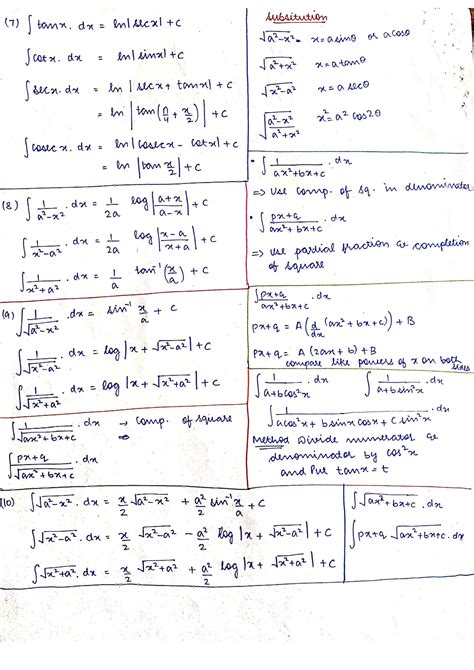 (7) ∫tanx. dx = ln|secx| + c
∫cotx. dx = ln|sinx| + c
∫secx. dx = ln|secx + tanx| + c
= ln|tan(π/4 + x/2)| + c
∫cosecx. dx = ln|cosecx - cotx| + c
= ln|tan x/2| + c
Subsitution
√a²-x² = x = a sinθ or a cosθ
√a²+x² x = a tanθ
√x²-a² x = a secθ
√(a²-x²)/(a²+x²) x² = a² cos2θ
• ∫ 1/(ax²+bx+c) . dx
=> Use comp. of sq. in denominator
• ∫ (px+q)/(ax²+bx+c) . dx
=> Use partial fraction & completion
of square
(8) ∫ 1/(a²-x²) . dx = 1/2a log|(a+x)/(a-x)| + c
∫ 1/(x²-a²) . dx = 1/2a log|(x-a)/(x+a)| + c
∫ 1/(x²+a²) . dx = 1/a tan⁻¹(x/a) + c
(9) ∫ 1/√a²-x² . dx = sin⁻¹ x/a + c
∫ 1/√x²-a² . dx = log|x + √x²-a²| + c
∫ 1/√x²+a² . dx = log|x + √x²+a²| + c
∫ 1/√ax²+bx+c . dx → comp. of square
∫ (px+q)/√ax²+bx+c . dx
∫ (px+q)/(ax²+bx+c) . dx
px+q = A(d/dx (ax²+bx+c)) + B
px+q = A(2ax+b) + B
compare like powers of x on both
sides
∫ 1/(a+bcos²x) . dx ∫ 1/(a+bsin²x) . dx
∫ 1/(acos²x + bsinxcosx + csin²x) . dx
Method Divide numerator &
denominator by cos²x
and Put tanx = t
(10) ∫√a²-x² . dx = x/2 √a²-x² + a²/2 sin⁻¹ x/a + c
∫√x²-a² . dx = x/2 √x²-a² - a²/2 log|x + √x²-a²| + c
∫√x²+a² . dx = x/2 √x²+a² + a²/2 log|x + √x²+a²| + c
∫√ax²+bx+c . dx
∫px+q √ax²+bx+c . dx